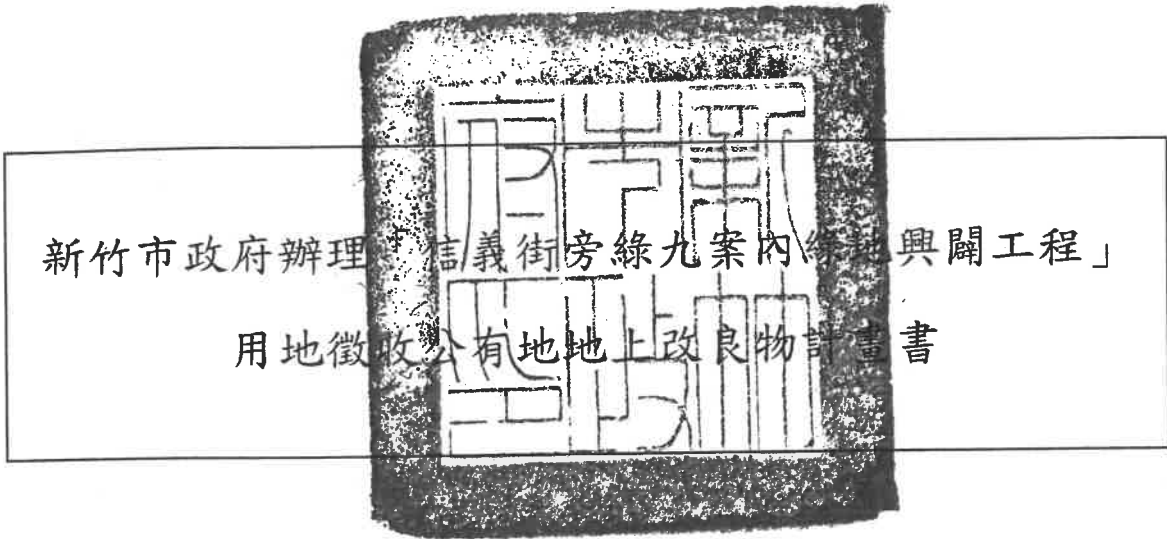 新竹市政府辦理「信義街旁綠九案內綠地興闢工程」
用地徵收公有地地上改良物計畫書
新竹市政府印